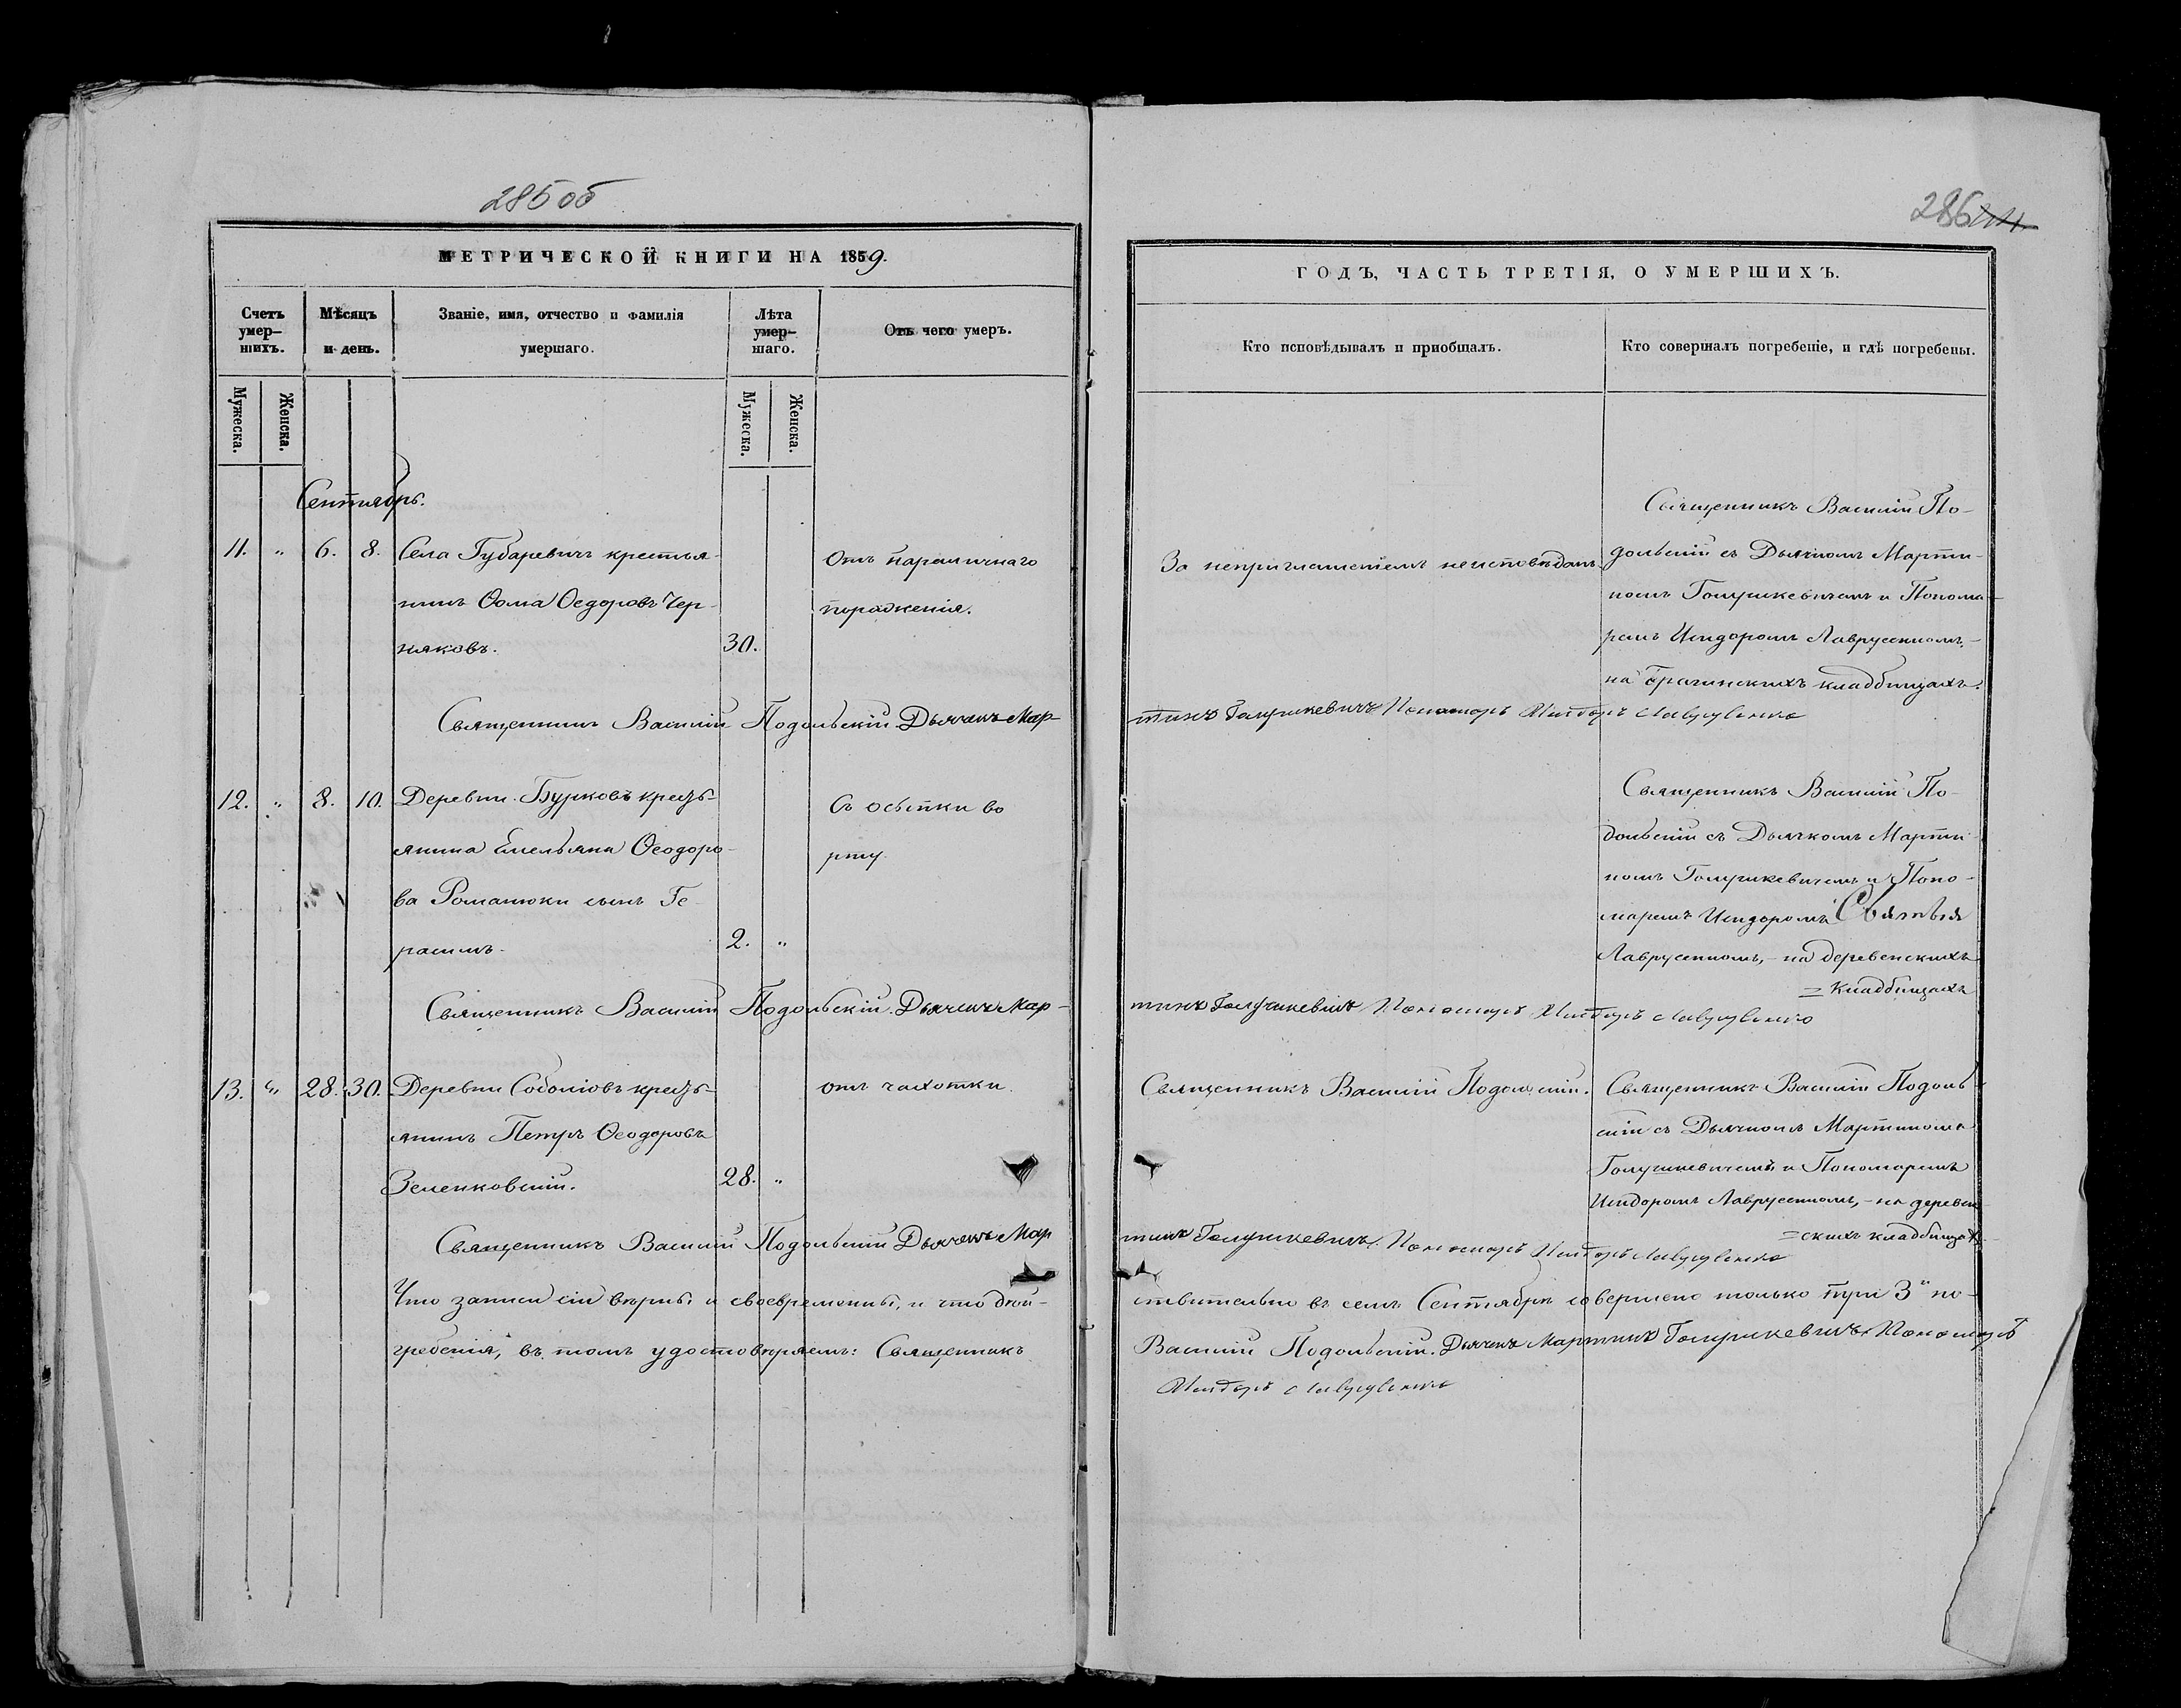 285 об
286
МЕТРИЧЕСКОЙ КНИГИ НА 1859.
Счетъ умер-шихъ.
Мѣсяцъ и день.
Званіе, имя, отчество и фамилія умершаго.
Лѣта умер-шаго.
Отъ чего умеръ.
Мужеска.
Женска.
Мужеска.
Женска.
ГОДЪ, ЧАСТЬ ТРЕТІЯ, О УМЕРШИХЪ.
Кто исповѣдывалъ и приобщалъ.
Кто совершалъ погребеніе, и гдѣ погребены.
Сентябрь.
11. " 6. 8.
Села Губаревичъ крестья-
нинъ Ѳома Ѳедоровъ Чер-
няковъ.
30.
Отъ параличнаго
пораженія.
За неприглашеніемъ неисповѣданъ.
Священникъ Василій По-
дольскій съ Дьячкомъ Марти-
номъ Голушкевичемъ и Понома-
ремъ Исидоромъ Лаврусенкомъ,-
на Брагинскихъ кладбищахъ.
Священникъ Василій Подольскій Дьячекъ Мар-
тинъ Голушкевичъ Пономарь Исидоръ Лаврусенко
12. " 8. 10.
Деревни Бурковъ кресть-
янина Емельяна Ѳеодоро-
ва Романюки сынъ Ге-
расимъ.
2. "
Съ осыпки во
рту.
Священникъ Василій По-
дольскій съ Дьячкомъ Марти-
номъ Голушкевичемъ и Поно-
маремъ Исидоромъ
Лаврусенкомъ,- на деревенскихъ
= кладбищахъ
Священникъ Василій Подольскій. Дьячекъ Мар-
тинъ Голушкевичъ Пономарь Исидоръ Лаврусенко
13. " 28. 30.
Деревни Соболіовъ кресть-
янинъ Петръ Ѳеодоровъ
Зеленковскій.
28. "
отъ чахотки.
Священникъ Василій Подольскій.
Священникъ Василій Подоль-
скій съ Дьячкомъ Мартиномъ
Голушкевичемъ и Пономаремъ
Исидоромъ Лаврусенкомъ,- на деревен
=скихъ кладбищахъ
Священникъ Василій Подольскій Дьячекъ Мар
тинъ Голушкевичъ. Пономарь Исидоръ Лаврусенко
Что записи сіи вѣрны и своевременны, и что дѣй-
ствительно въ семъ Сентябрѣ совершено только три 3 по-
гребенія, въ томъ удостовѣряемъ: Священникъ
Василій Подольскій. Дьячекъ Мартинъ Голушкевичъ. Пономарь
Исидоръ Лаврусенко